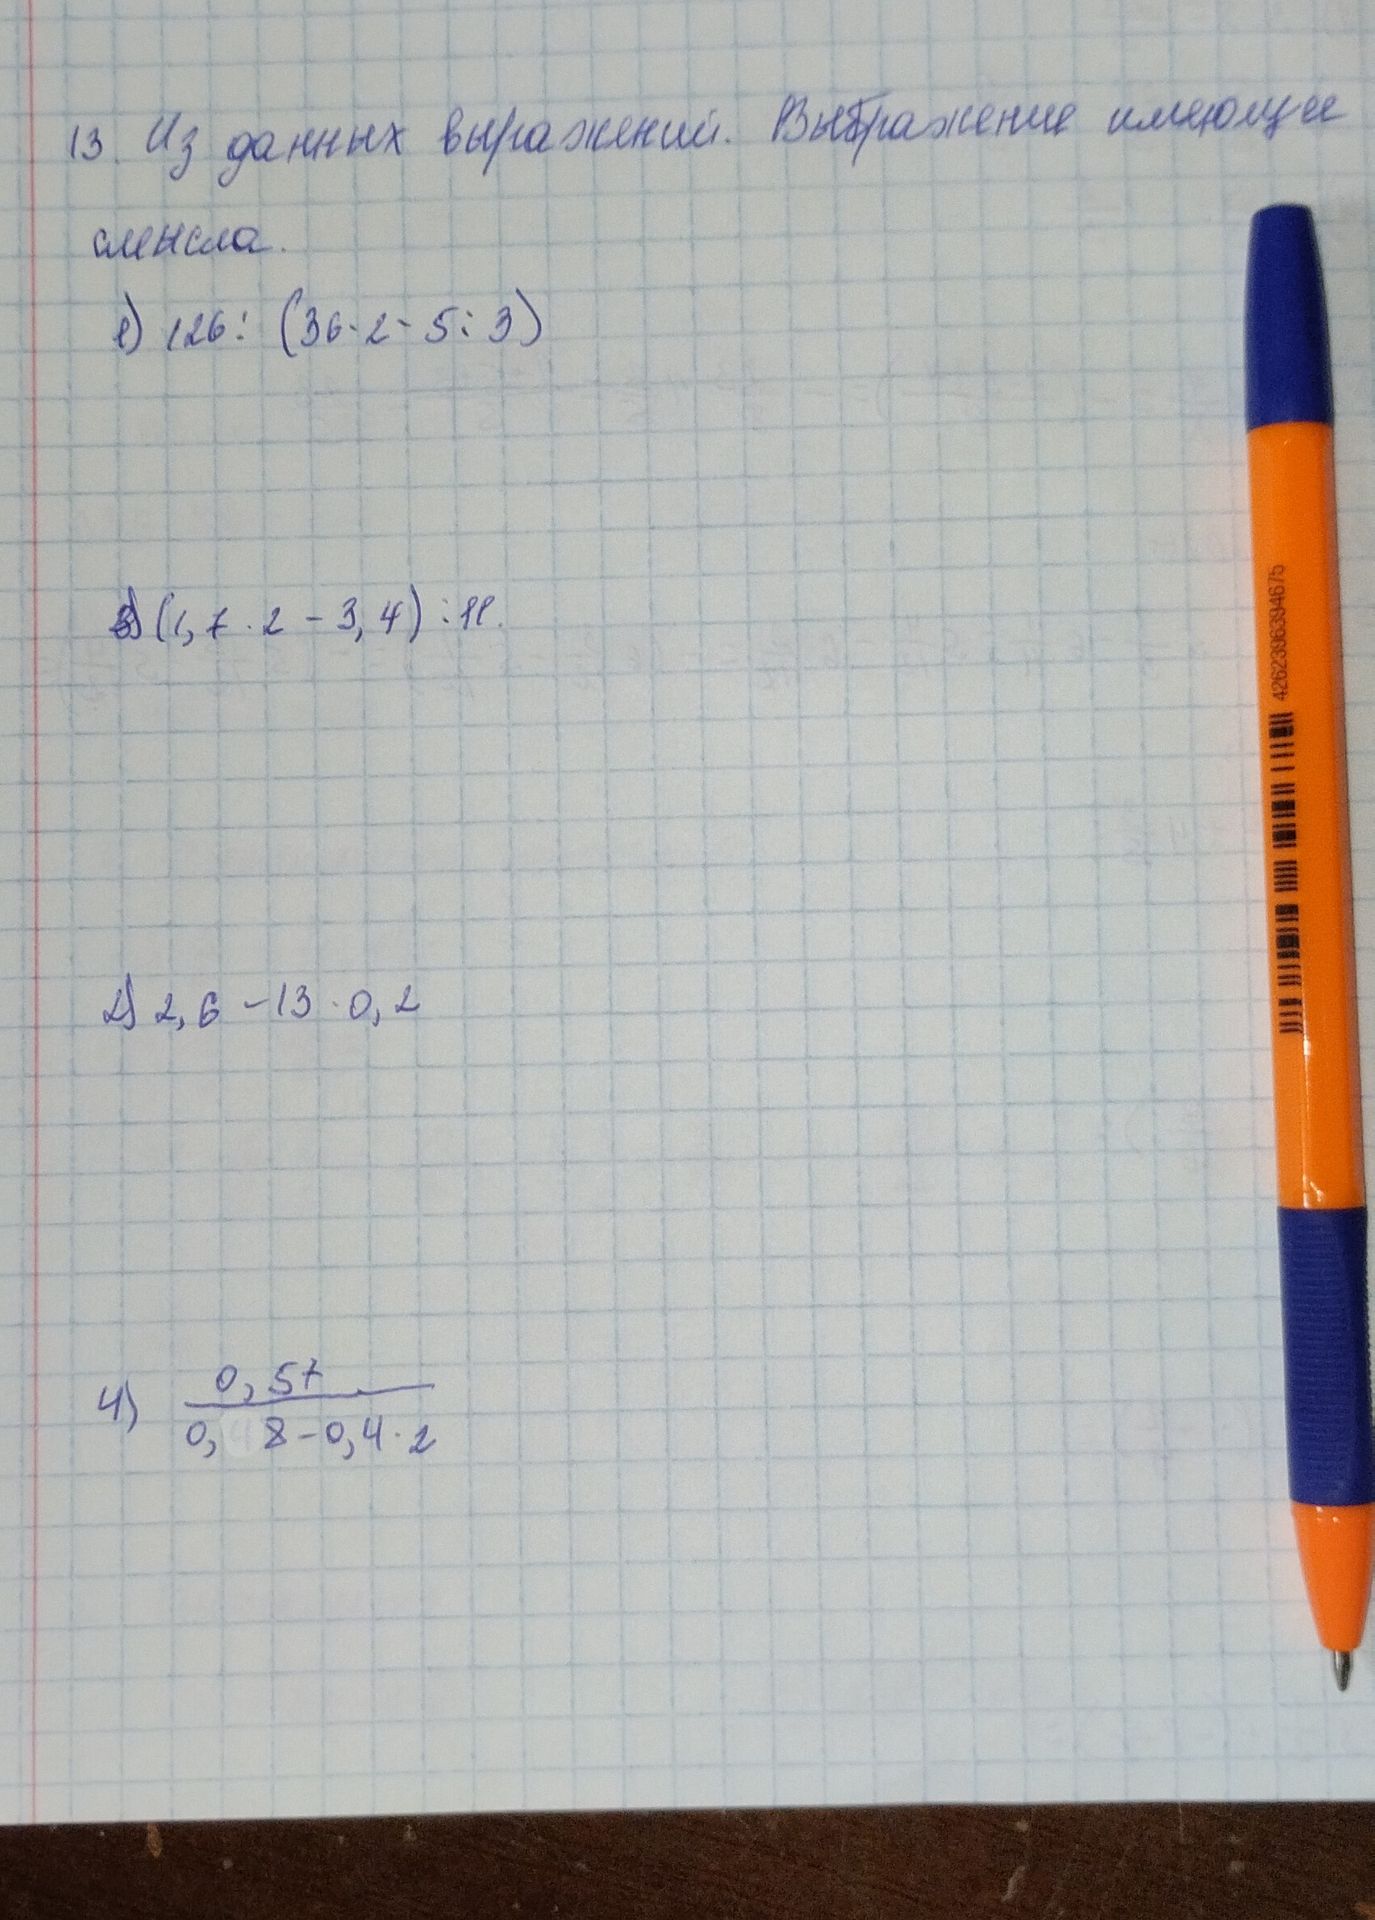 13. Из данных выражений. Выбражение имеющее
смысла.
1) 126 : (36 · 2 - 5 : 3)
3) (1,7 · 2 - 3,4) : 11.
2) 2,6 - 13 · 0,2
4) 0,57
0, 8 - 0,4 · 2
4262396394675